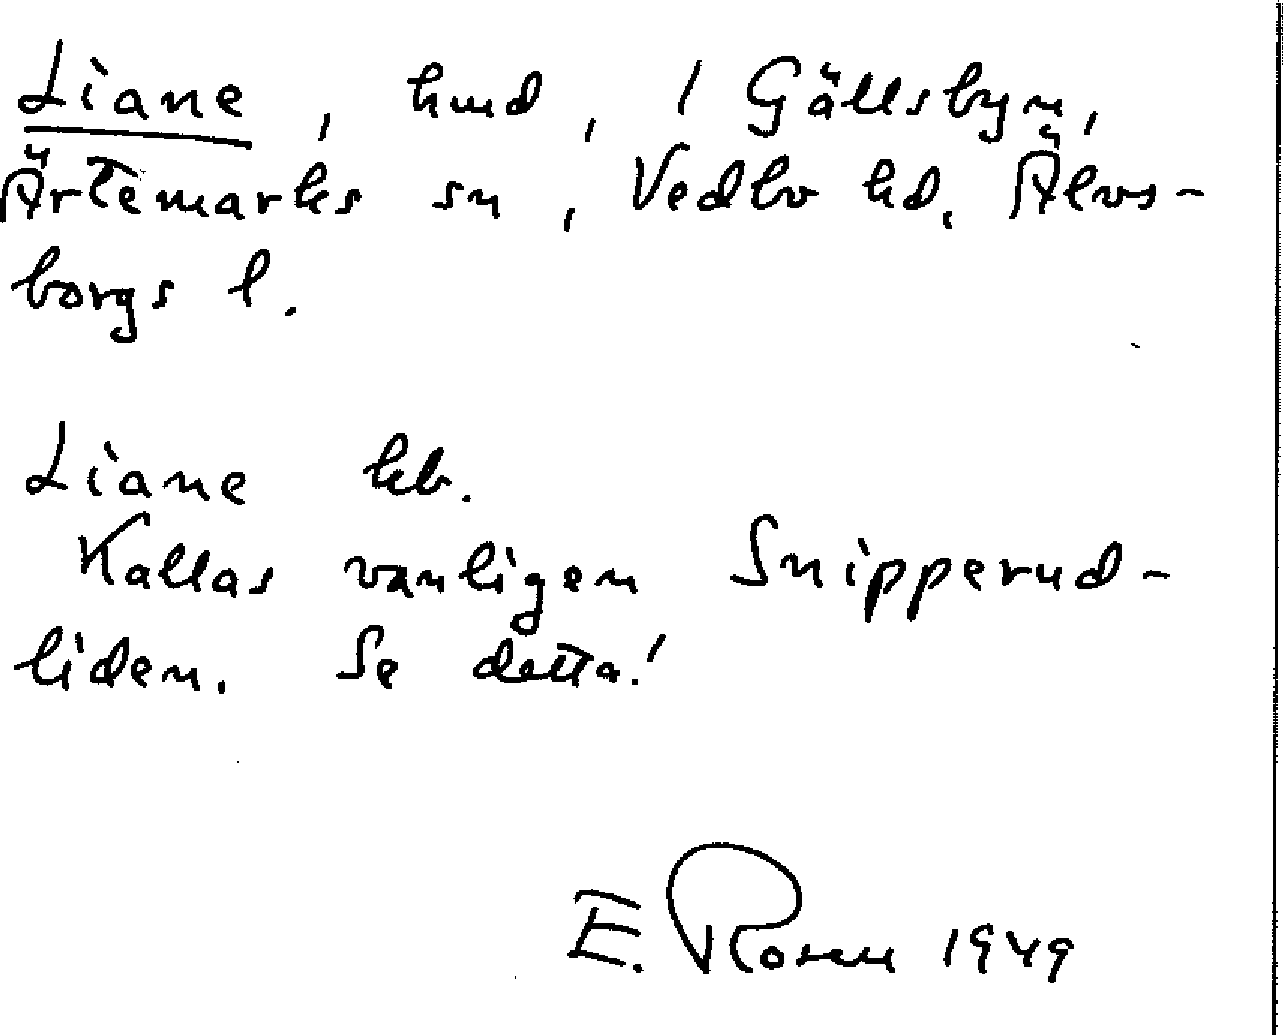 Liane, hmd, i Gällsbyn,
Ärtemarks sn, Vedbo hd, Älvs-
borgs l.
Liane kb.
Kallas vanligen Snipperud-
liden. Se detta!
E. Rosen 1949